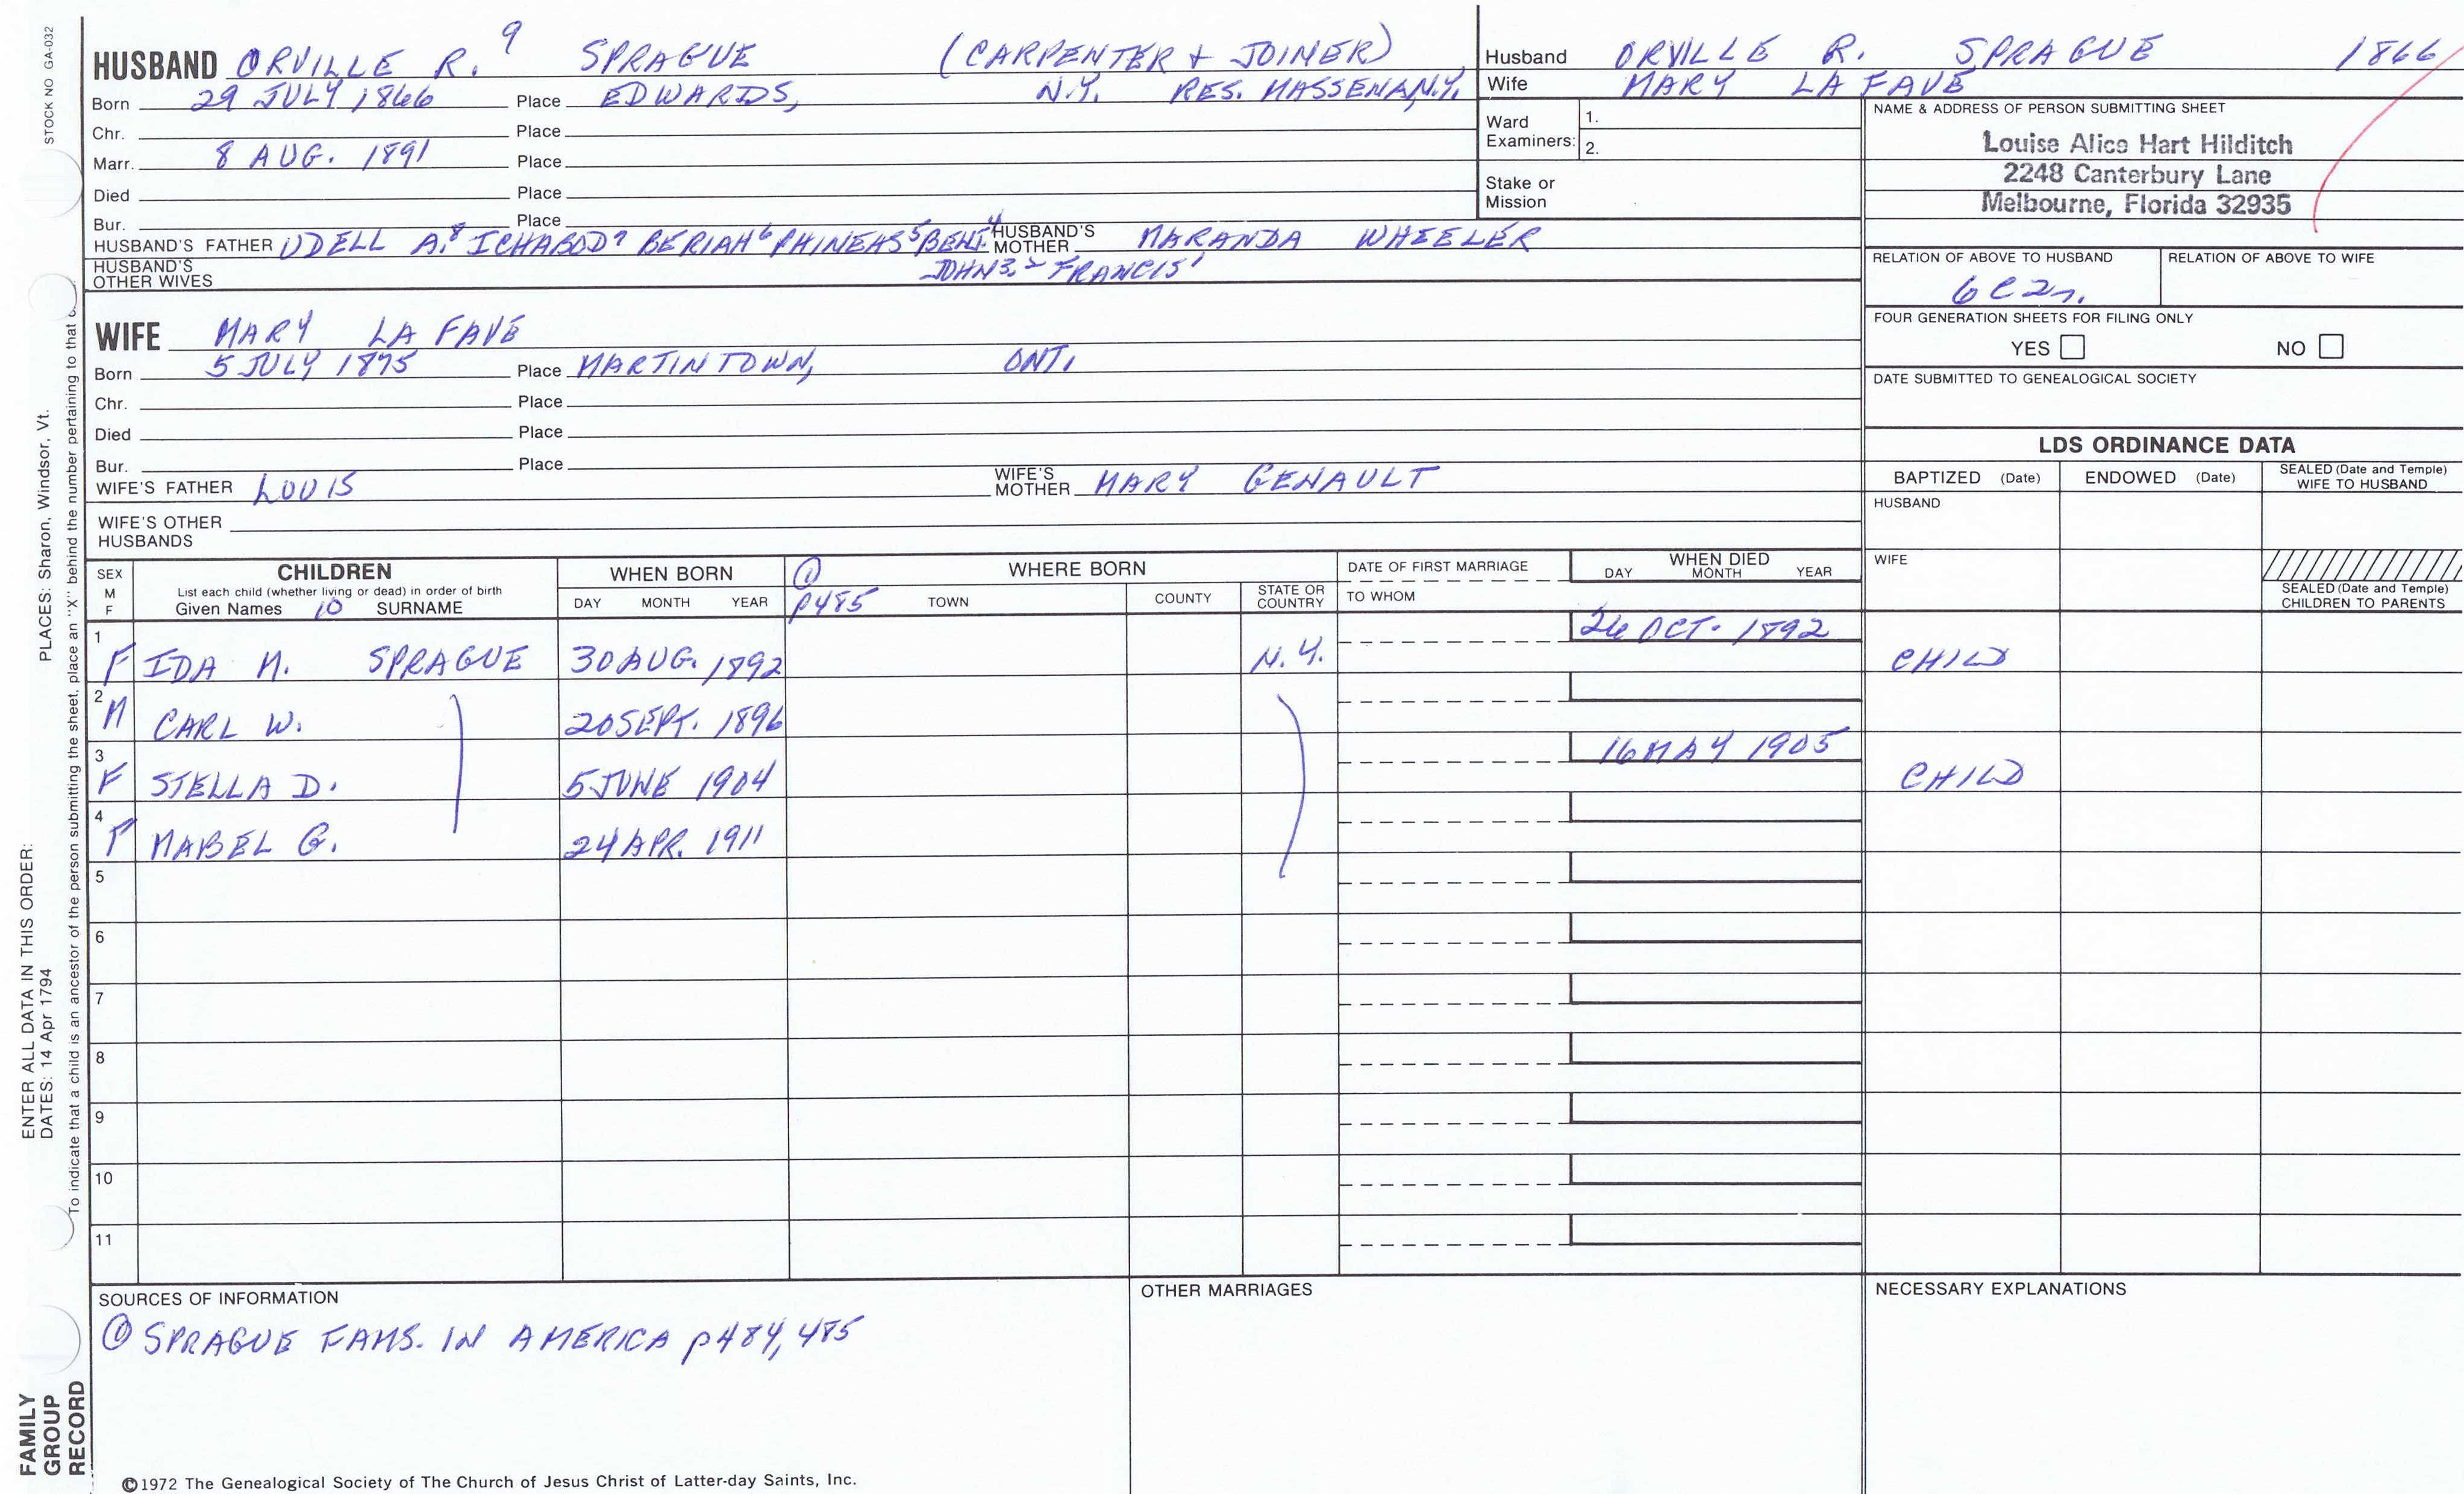 STOCK NO GA-032
HUSBAND ORVILLE R. 9 SPRAGUE (CARPENTER + JOINER)
Born 29 JULY 1866 Place EDWARDS, N.Y. RES. MASSENA, N.Y.
Chr. Place
Marr. 8 AUG. 1891 Place
Died Place
Bur. Place
HUSBAND'S FATHER UDELL A.8 ICHABOD7 BERIAH6 PHINEAS5 BENJ.4 HUSBAND'S MOTHER MARANDA WHEELER
HUSBAND'S OTHER WIVES JOHN3,2 FRANCIS1
Husband ORVILLE R. SPRAGUE 1866
Wife MARY LA FAVE
Ward Examiners: 1.
2.
Stake or Mission
NAME & ADDRESS OF PERSON SUBMITTING SHEET
Louise Alice Hart Hilditch
2248 Canterbury Lane
Melbourne, Florida 32935
RELATION OF ABOVE TO HUSBAND RELATION OF ABOVE TO WIFE
6C2r.
FOUR GENERATION SHEETS FOR FILING ONLY
YES NO
DATE SUBMITTED TO GENEALOGICAL SOCIETY
WIFE MARY LA FAVE
Born 5 JULY 1875 Place MARTINTOWN, ONT.
Chr. Place
Died Place
Bur. Place
WIFE'S FATHER LOUIS WIFE'S MOTHER MARY GENAULT
WIFE'S OTHER HUSBANDS
LDS ORDINANCE DATA
BAPTIZED (Date) ENDOWED (Date) SEALED (Date and Temple) WIFE TO HUSBAND
HUSBAND
WIFE
SEALED (Date and Temple) CHILDREN TO PARENTS
SEX M F
CHILDREN
List each child (whether living or dead) in order of birth
Given Names 10 SURNAME
WHEN BORN
DAY MONTH YEAR
① p485
WHERE BORN
TOWN COUNTY STATE OR COUNTRY
DATE OF FIRST MARRIAGE
TO WHOM
WHEN DIED
DAY MONTH YEAR
1 F IDA M. SPRAGUE 30 AUG. 1892 N.Y. 26 OCT. 1892 CHILD
2 M CARL W. 20 SEPT. 1896
3 F STELLA D. 5 JUNE 1904 16 MAY 1905 CHILD
4 F MABEL G. 24 APR. 1911
5
6
7
8
9
10
11
SOURCES OF INFORMATION
① SPRAGUE FAMS. IN AMERICA p484, 485
OTHER MARRIAGES
NECESSARY EXPLANATIONS
©1972 The Genealogical Society of The Church of Jesus Christ of Latter-day Saints, Inc.
FAMILY GROUP RECORD
ENTER ALL DATA IN THIS ORDER:
DATES: 14 Apr 1794 PLACES: Sharon, Windsor, Vt.
To indicate that a child is an ancestor of the person submitting the sheet, place an "X" behind the number pertaining to that